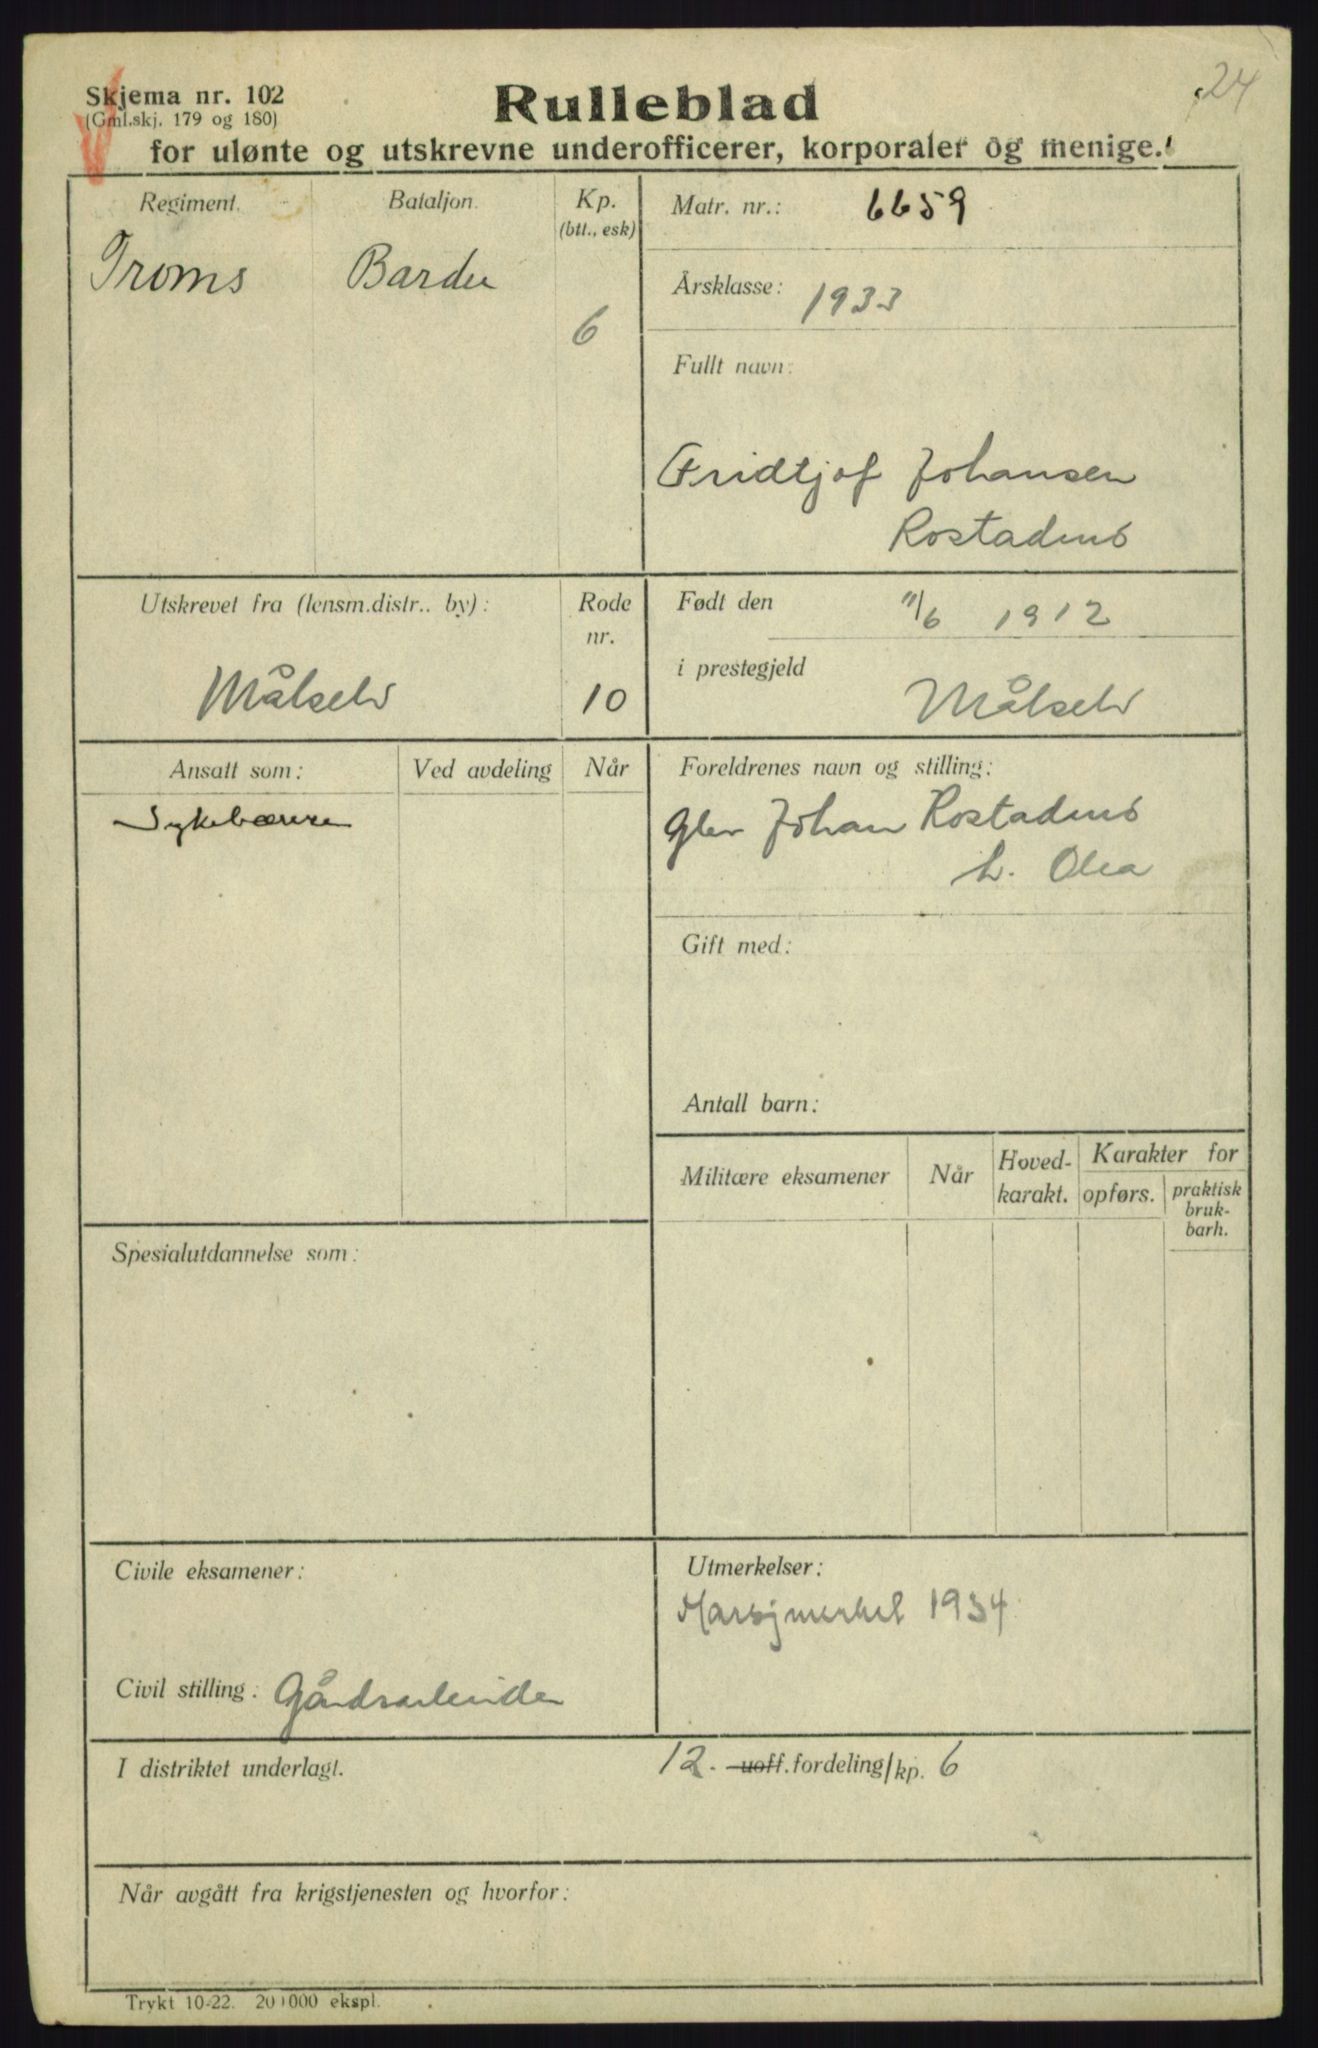 24
Skjema nr. 102
(Gml.skj. 179 og 180)
Rulleblad
for ulønte og utskrevne underofficerer, korporaler og menige.
Regiment.
Bataljon.
Kp.
(btl., esk)
Troms
Bardu
6
Matr. nr.: 6659
Årsklasse: 1933
Fullt navn:
Fridtjof Johansen
Rostadens
Utskrevet fra (lensm.distr.. by):
Rode
nr.
Målselv
10
Født den 11/6 1912
i prestegjeld
Målselv
Ansatt som:
Ved avdeling
Når
Sykebærer
Foreldrenes navn og stilling:
Gbr Johan Rostadens
h. Olea
Gift med:
Antall barn:
Militære eksamener
Når
Hoved-
karakt.
Karakter for
opførs.
praktisk
bruk-
barh.
Spesialutdannelse som:
Civile eksamener:
Civil stilling: Gårdsarbeider
Utmerkelser:
Marsjmerket 1934
I distriktet underlagt.
12. uoff. fordeling/kp. 6
Når avgått fra krigstjenesten og hvorfor:
Trykt 10-22. 20 000 ekspl.